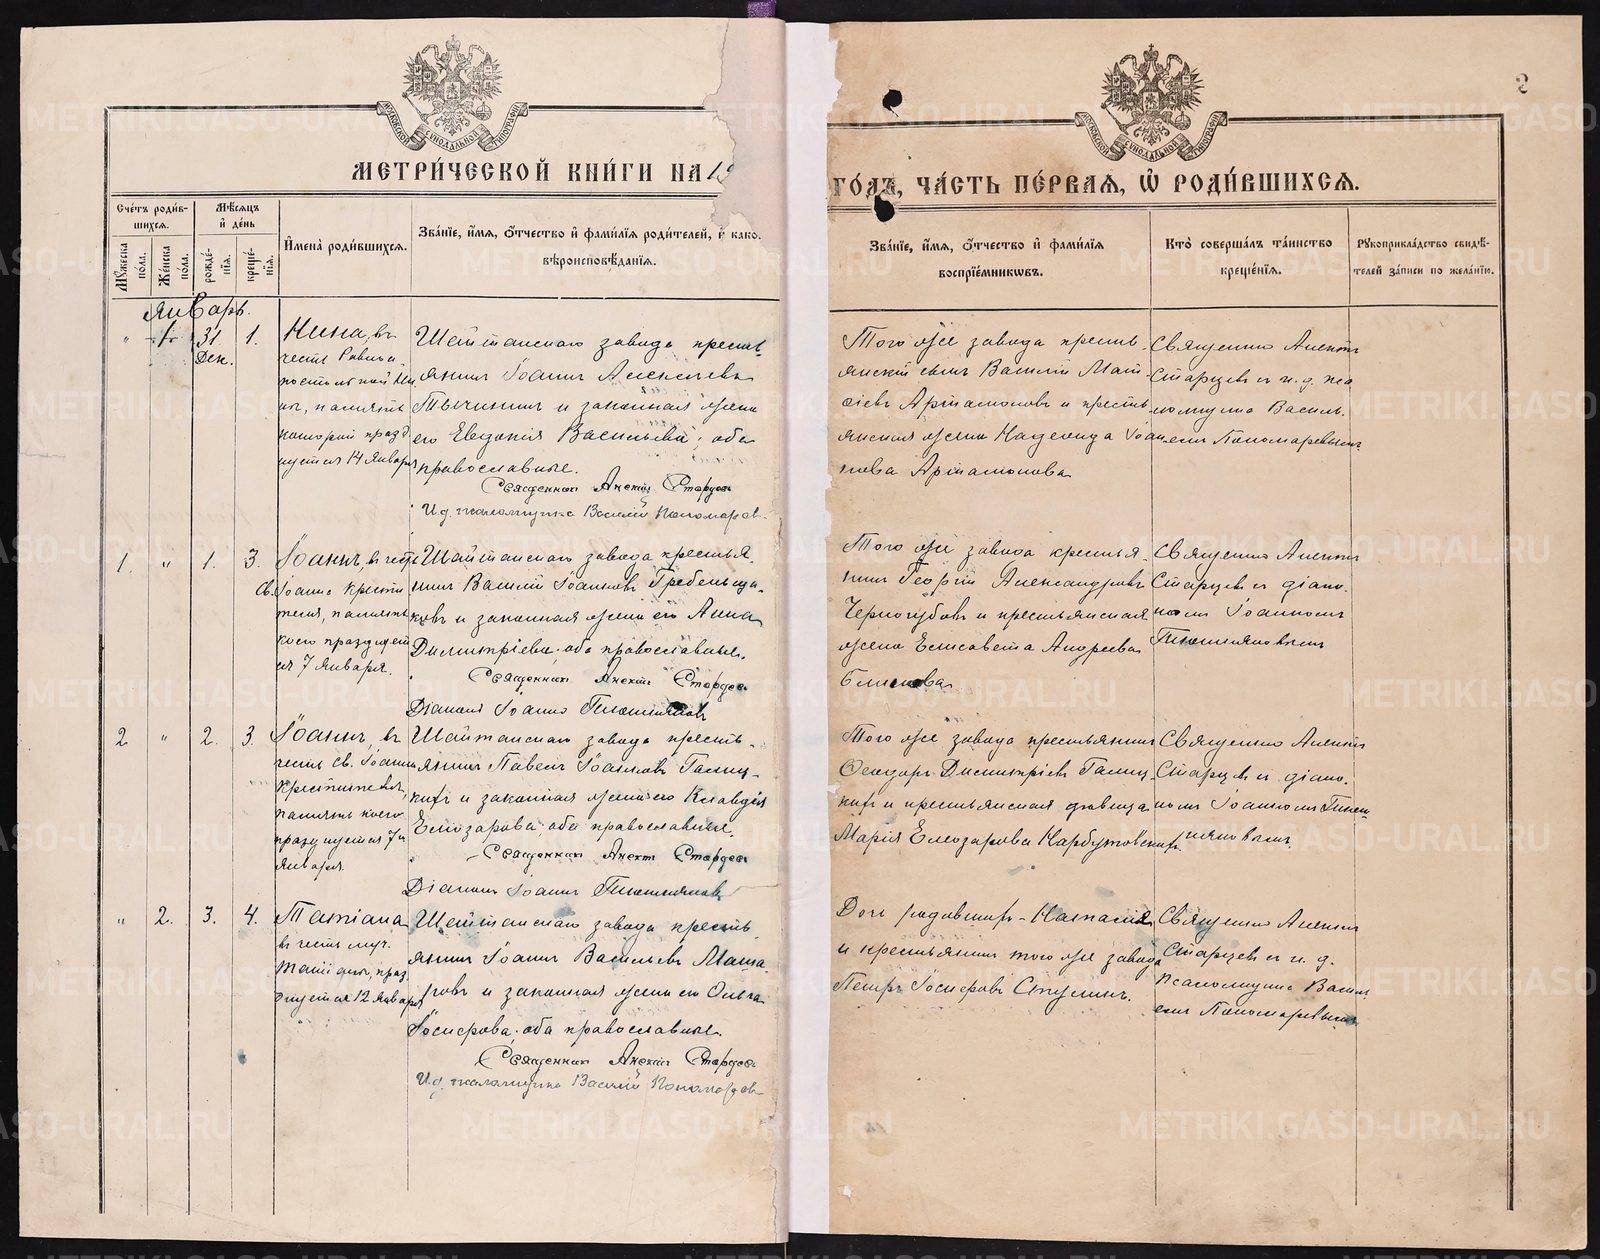 МЕТРИ́ЧЕСКОЙ КНИ́ГИ НА 19
ГО́ДЪ, ЧА́СТЬ ПЕ́РВАѦ, Ѡ҆ РОДИ́ВШИХСѦ.
2
МОСКОВСКОЙ СѴНОДАЛЬНОЙ ТИПОГРАФІИ
МОСКОВСКОЙ СѴНОДАЛЬНОЙ ТИПОГРАФІИ
Сче́тъ роди́в-
шихсѧ.
Мѣ́сѧцъ
и҆ де́нь
Мꙋ́жеска по́ла.
Же́нска по́ла.
рожде́-нїѧ.
креще́-нїѧ.
И҆мена̀ роди́вшихсѧ.
Зва́нїе, и҆́мѧ, ѻ҆́тчество и҆ фами́лїѧ роди́телей, и҆ како́-
вѣроисповѣ́данїѧ.
Зва́нїе, и҆́мѧ, ѻ҆́тчество и҆ фами́лїѧ
воспрїе́мникѡвъ.
Кто̀ соверша́лъ та́инство
креще́нїѧ.
Рꙋкоприкла́дство свидѣ́-
телей за́писи по жела́нїю.
Январь.
" 1 31 Дек. 1.
Нина, въ
честь Равноа
постольной Ни
ны, память
которой празд
нуется 14 Января
Шайтанскаго завода кресть-
янинъ Іоаннъ Алексѣевъ
и законная жена
его Евдокія Васильева; оба
православные.
Священникъ Алексѣй Старцевъ
И.д. псаломщика Василій Пономаревъ
Того же завода кресть
янскій сынъ Василій Мат
ѳіевъ Артамоновъ и кресть
янская жена Надежда Іоан
нова Артамонова
Священникъ Алексѣй
Старцевъ съ и. д. пса
ломщика Василь
емъ Пономаревымъ.
1. " 1. 3.
Іоаннъ, въ честь
св. Іоанна Крести
теля, память
коего празднует
ся 7 Января.
Шайтанскаго завода крестья
нинъ Василій Іоанновъ Гребенщи-
ковъ и законная жена его Анна
Димитріева; оба православные.
Священникъ Алексѣй Старцевъ
Діаконъ Іоаннъ
Того же завода крестья
нинъ Георгій Александровъ
Черногубовъ и крестьянская
жена Елисавета Андреева
Священникъ Алексѣй
Старцевъ съ діако-
номъ Іоанномъ
2 " 2. 3.
Іоаннъ, въ
честь св. Іоанна
Крестителя,
память коего
празднуется 7го
Января.
Шайтанскаго завода кресть-
янинъ Павелъ Іоанновъ Галиц-
кихъ и законная жена его Клавдія
Елеозарова; оба православные.
Священникъ Алексѣй Старцевъ
Діаконъ Іоаннъ
Того же завода крестьянинъ
Ѳеодоръ Димитріевъ Галиц
кихъ и крестьянская дѣвица
Марія Елеозарова Нарбутовскихъ
Священникъ Алексѣй
Старцевъ съ діако-
номъ Іоанномъ
" 2. 3. 4.
Татіана
въ честь муч.
Татіаны, праз
днуется 12 Января
Шайтанскаго завода кресть
янинъ Іоаннъ Васильевъ
и законная жена его Ольга
Іосифова; оба православные.
Священникъ Алексѣй Старцевъ
И.д. псаломщика Василій Пономаревъ
Дочь родившихъ - Наталія
и крестьянинъ того же завода
Петръ Іосифовъ
Священникъ Алексѣй
Старцевъ съ и. д.
псаломщика Васил
емъ Пономаревымъ
METRIKI.GASO-URAL.RU